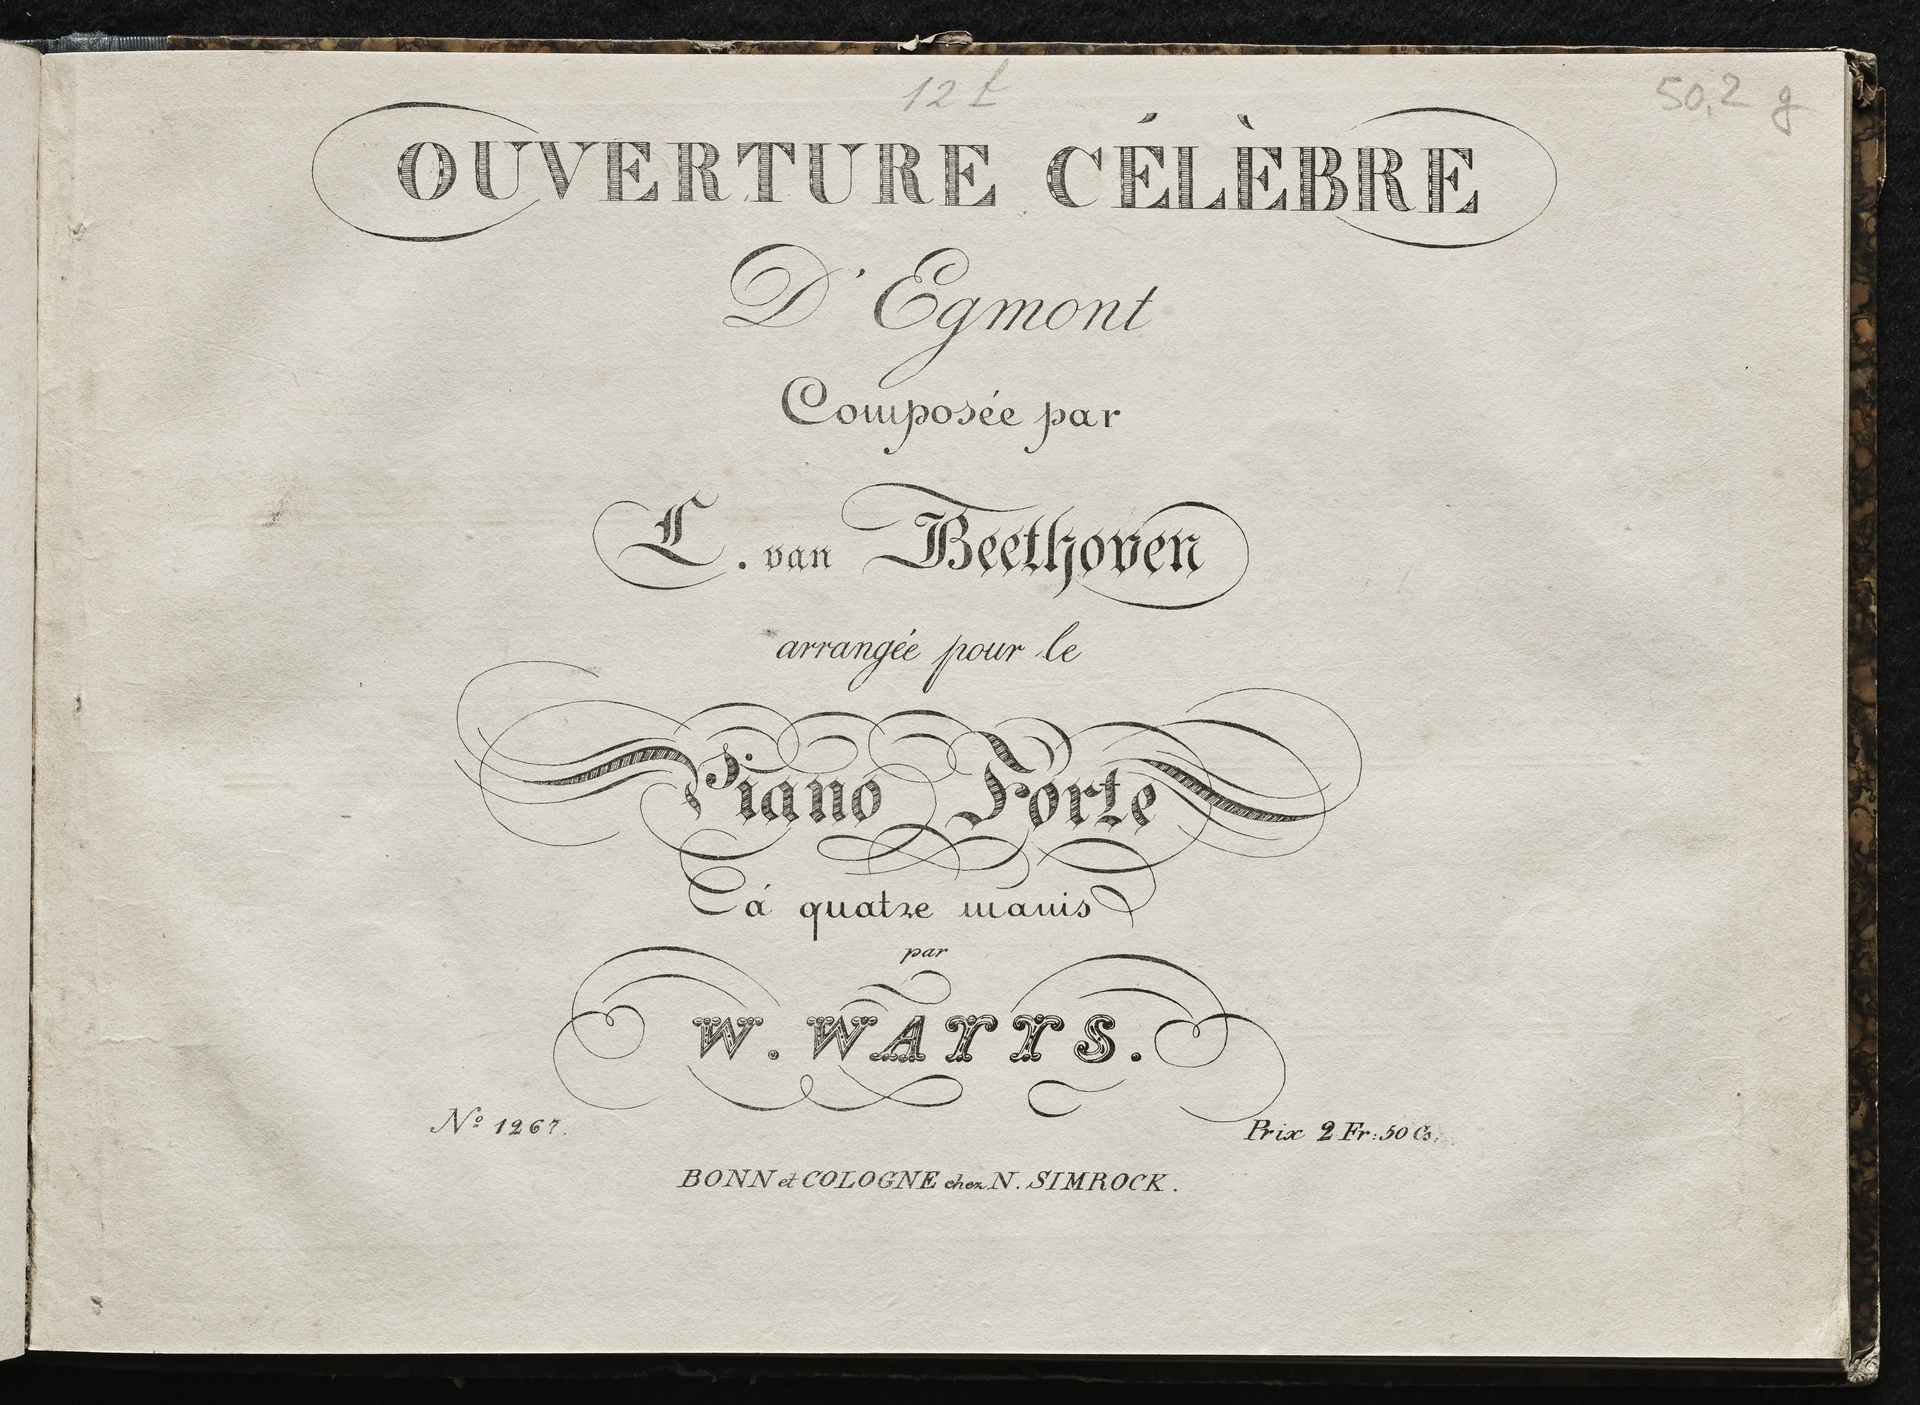 12 t
50,2 g
OUVERTURE CÉLÈBRE
D'Egmont
Composée par
L. van Beethoven
arrangée pour le
Piano Forte
á quatre mains
par
W. WATTS.
Nº 1267.
Prix 2 Fr: 50 Cs.
BONN et COLOGNE chez N. SIMROCK.